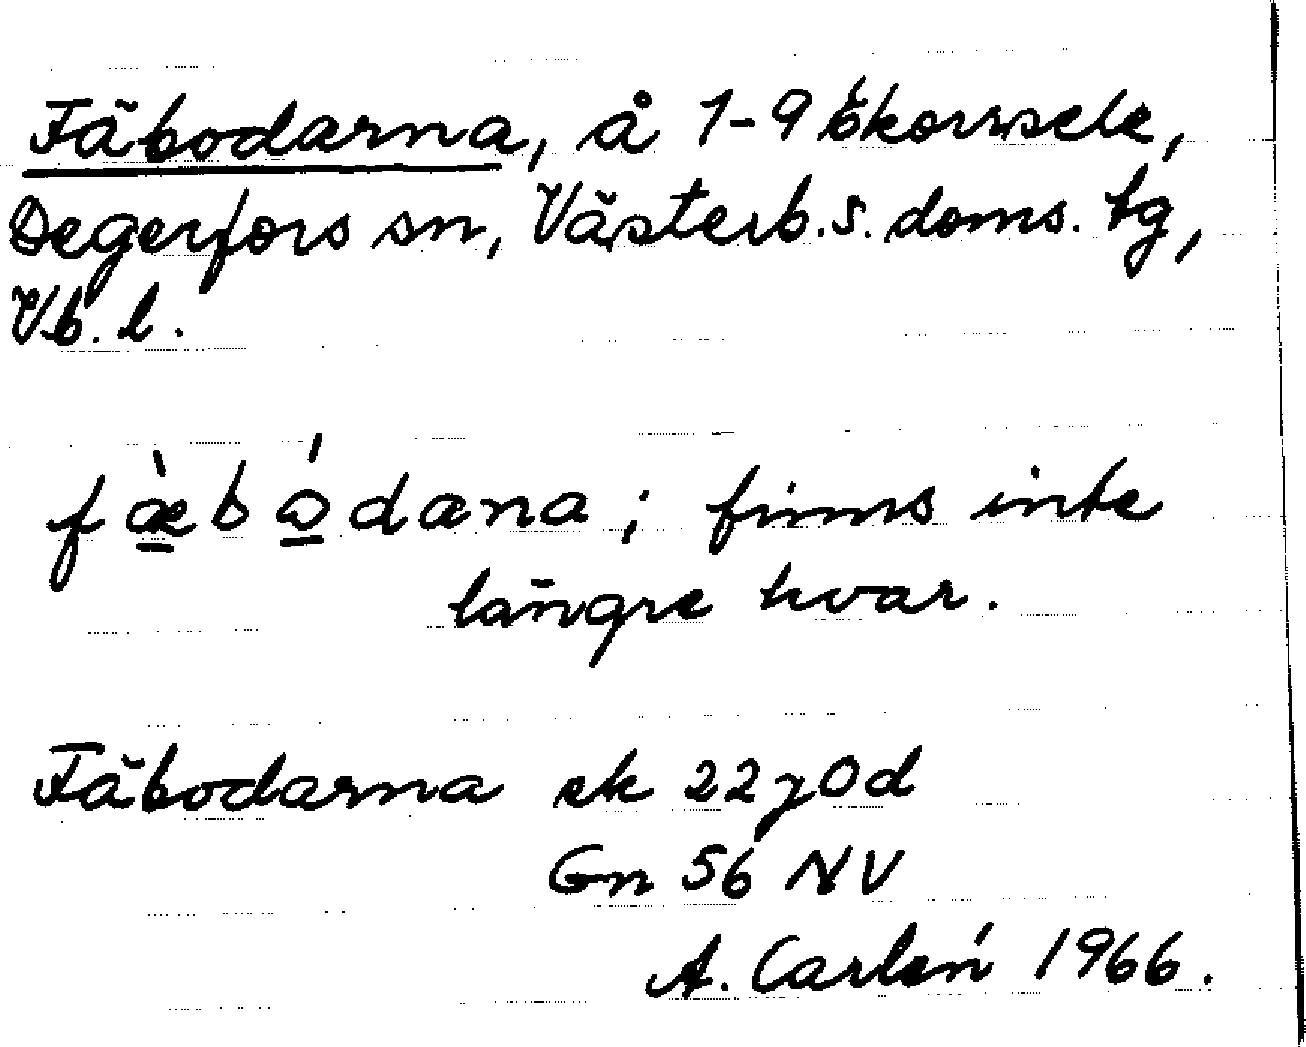 Fäbodarna, å 1-9 Ekorrsele,
Degerfors sn, Västerb. s. doms. tg,
Vb. l.
fæ̀bɷ́dæna; finns inte
längre kvar.
Fäbodarna ek 22J0d
Gn 56 NV
A. Carlén 1966.